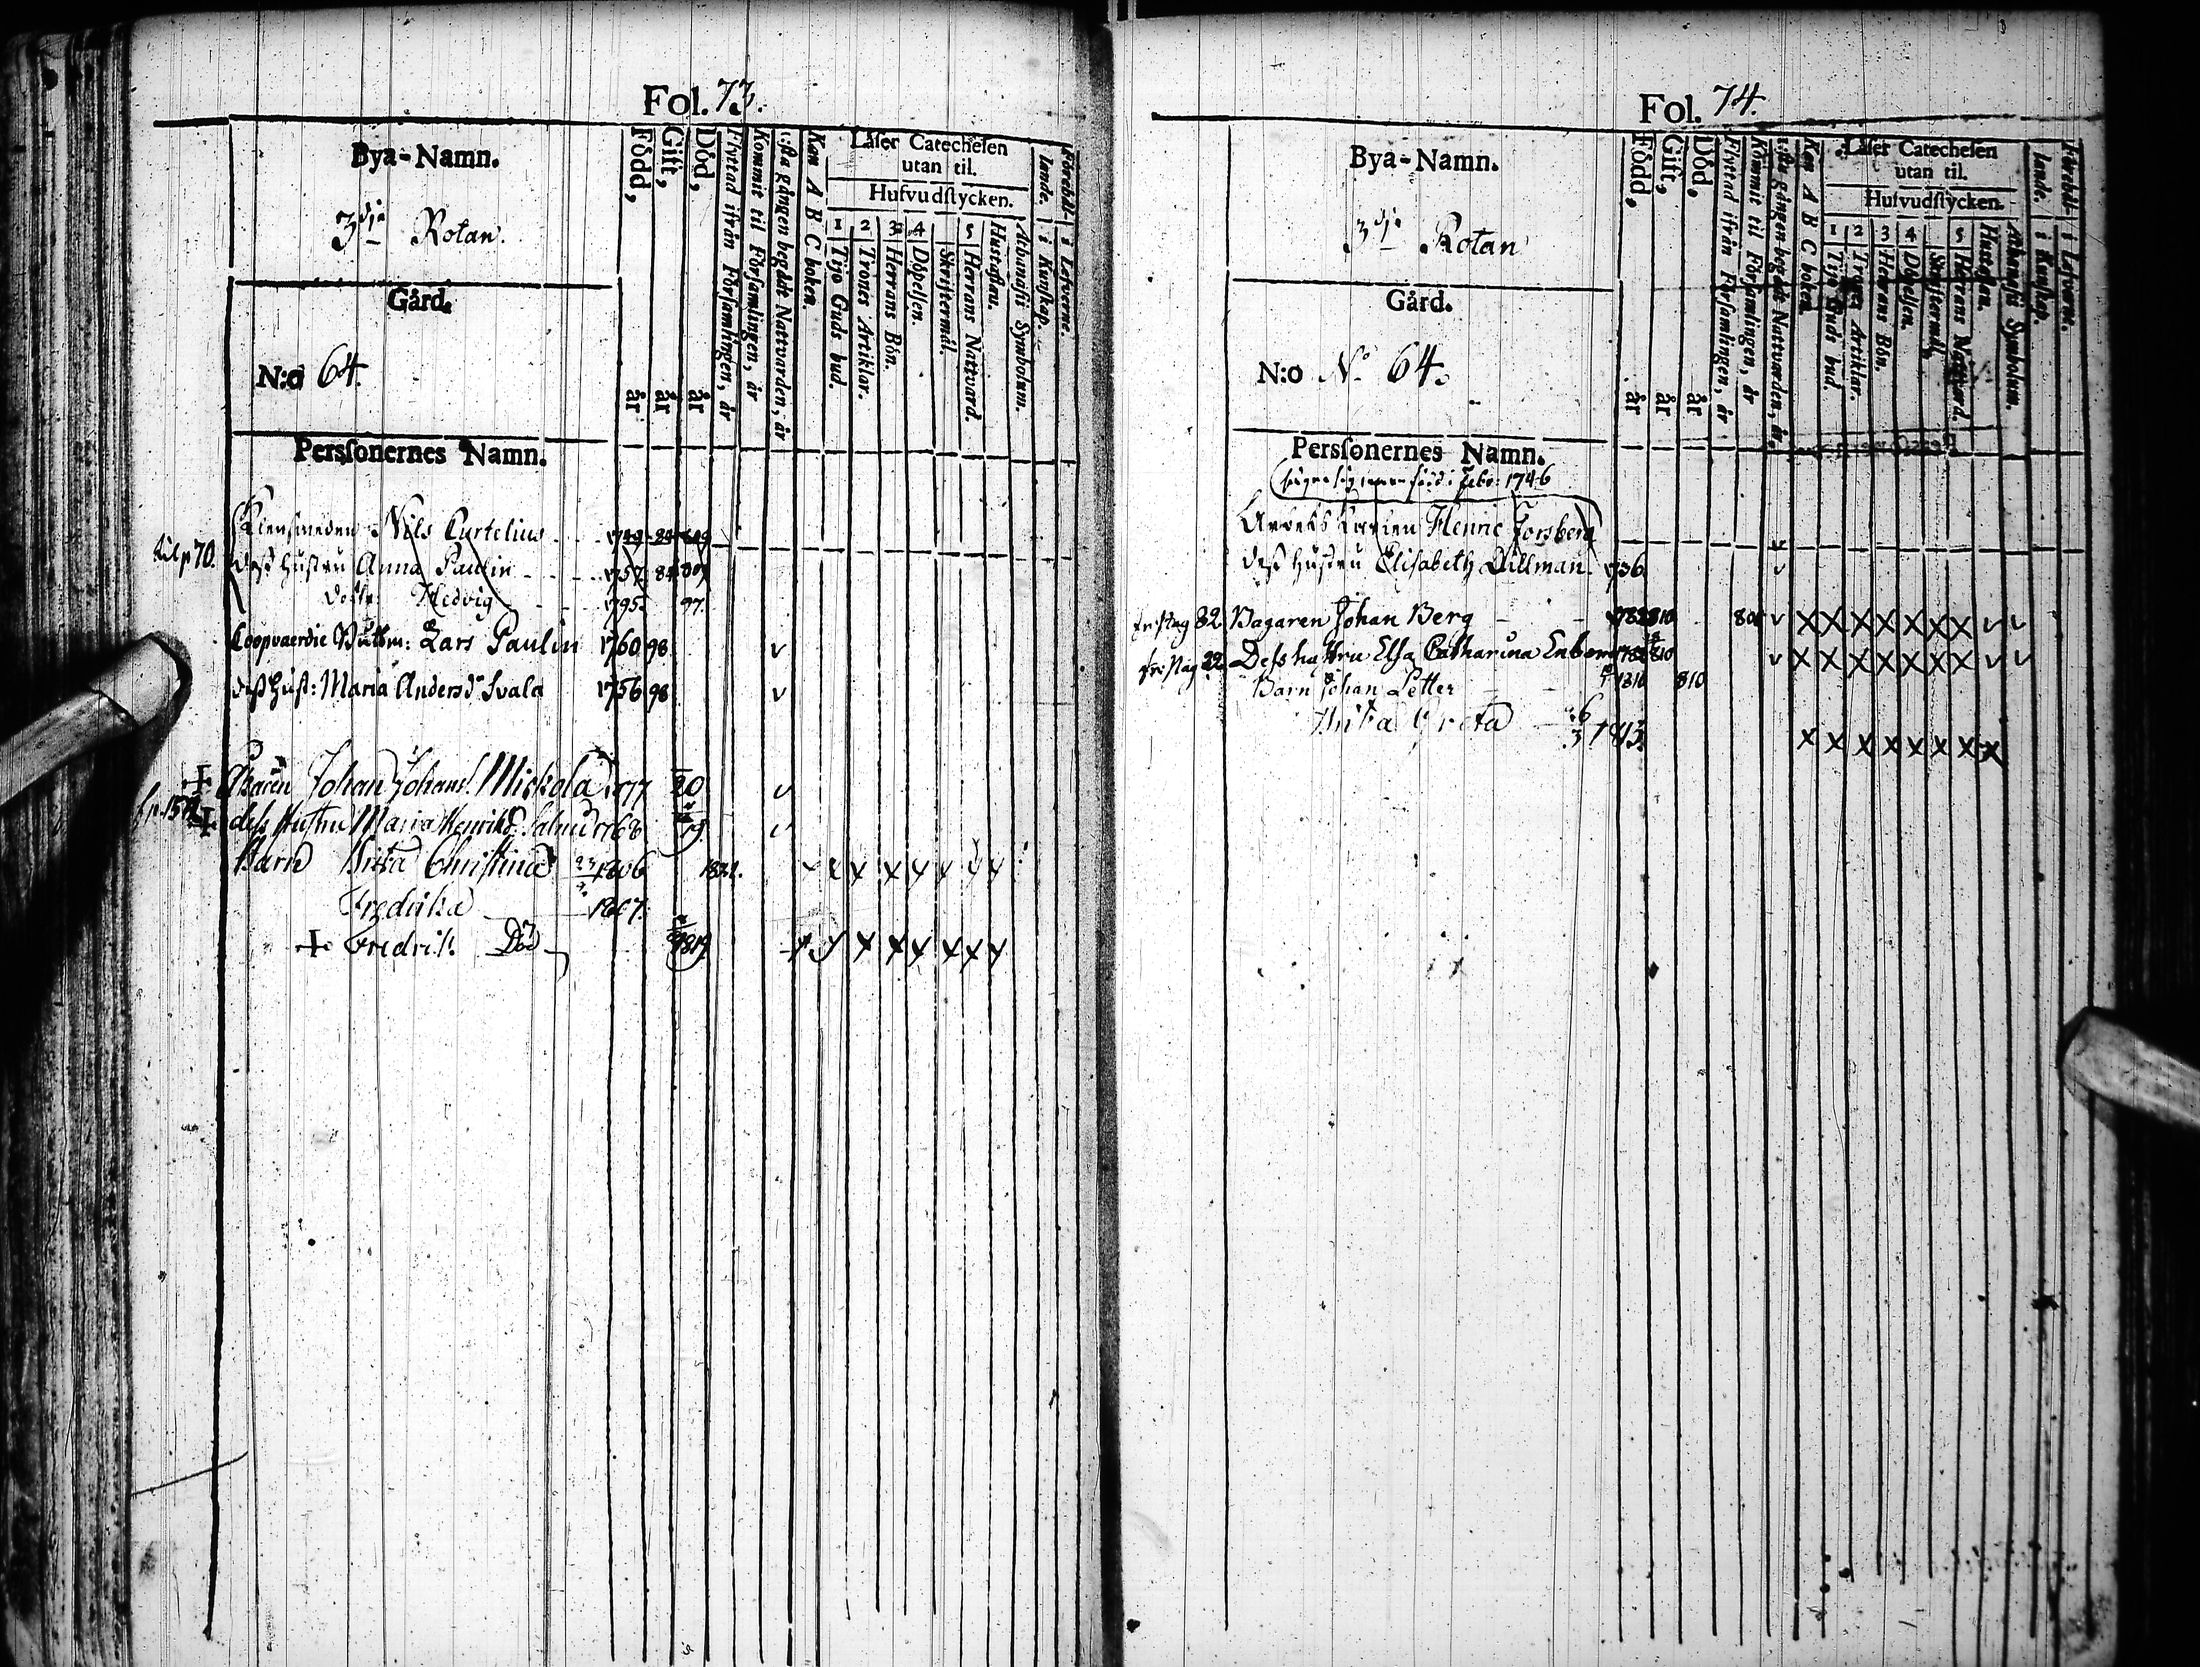 Fol. 73.
Bya-Namn.
3dje Rotan.
Gård.
N:o 64.
Född, år
Gift, år
Död, år
Flyttad ifrån Församlingen, år
Kommit til Församlingen, år
1:sta gången begådt Nattvarden, år
Kan A B C boken.
Läser Catechesen utan til.
Hufvudstycken.
1 Tijo Guds bud.
2 Trones Artiklar.
3 Herrans Bön.
4 Döpelsen.
Skriftermål.
5 Herrans Nattvard.
Hustaflan.
Athanasii Symbolum.
Förehållande.
i Kunskap.
i Lefverne.
Personernes Namn.
Klensmeden Nils Curtelius
til p 70. dess hustru Anna Paulin 1757 84 809
dottr. Hedvig 1795. 97.
Coopvaerdie Båtsm: Lars Paulin 1760 98 v
dess Hust: Maria Andersdr Svala 1756 98 v
+ Johan Johans. Mickola 1777 20 v
+ dess Hustru Maria Henriks 1768 19. v
Barn Christina 1806 1822.
Fredrika 1807.
+ Fredrik. Död 1819
Fol. 74.
Bya-Namn.
3dje Rotan
Gård.
N:o No 64.
Född, år
Gift, år
Död, år
Flyttad ifrån Församlingen, år
Kommit til Församlingen, år
1:sta gången begådt Nattvarden, år
Kan A B C boken.
Läser Catechesen utan til.
Hufvudstycken.
1 Tijo Guds bud.
2 Trones Artiklar.
3 Herrans Bön.
4 Döpelsen.
Skriftermål.
5 Herrans Nattvard.
Hustaflan.
Athanasii Symbolum.
Förehållande.
i Kunskap.
i Lefverne.
Personernes Namn.
född i Febr: 1746
Arbets Karlen Henric Forsberg v
dess hustru Elisabeth Dillman. 1736. v
82 Bagaren Johan Berg 810 v X X X X X X X v v
Dess hustru Elsa Catharina 810 v X X X X X X X v v
Barn Johan Petter 1810 810
Greta 1813. X X X X X X X X